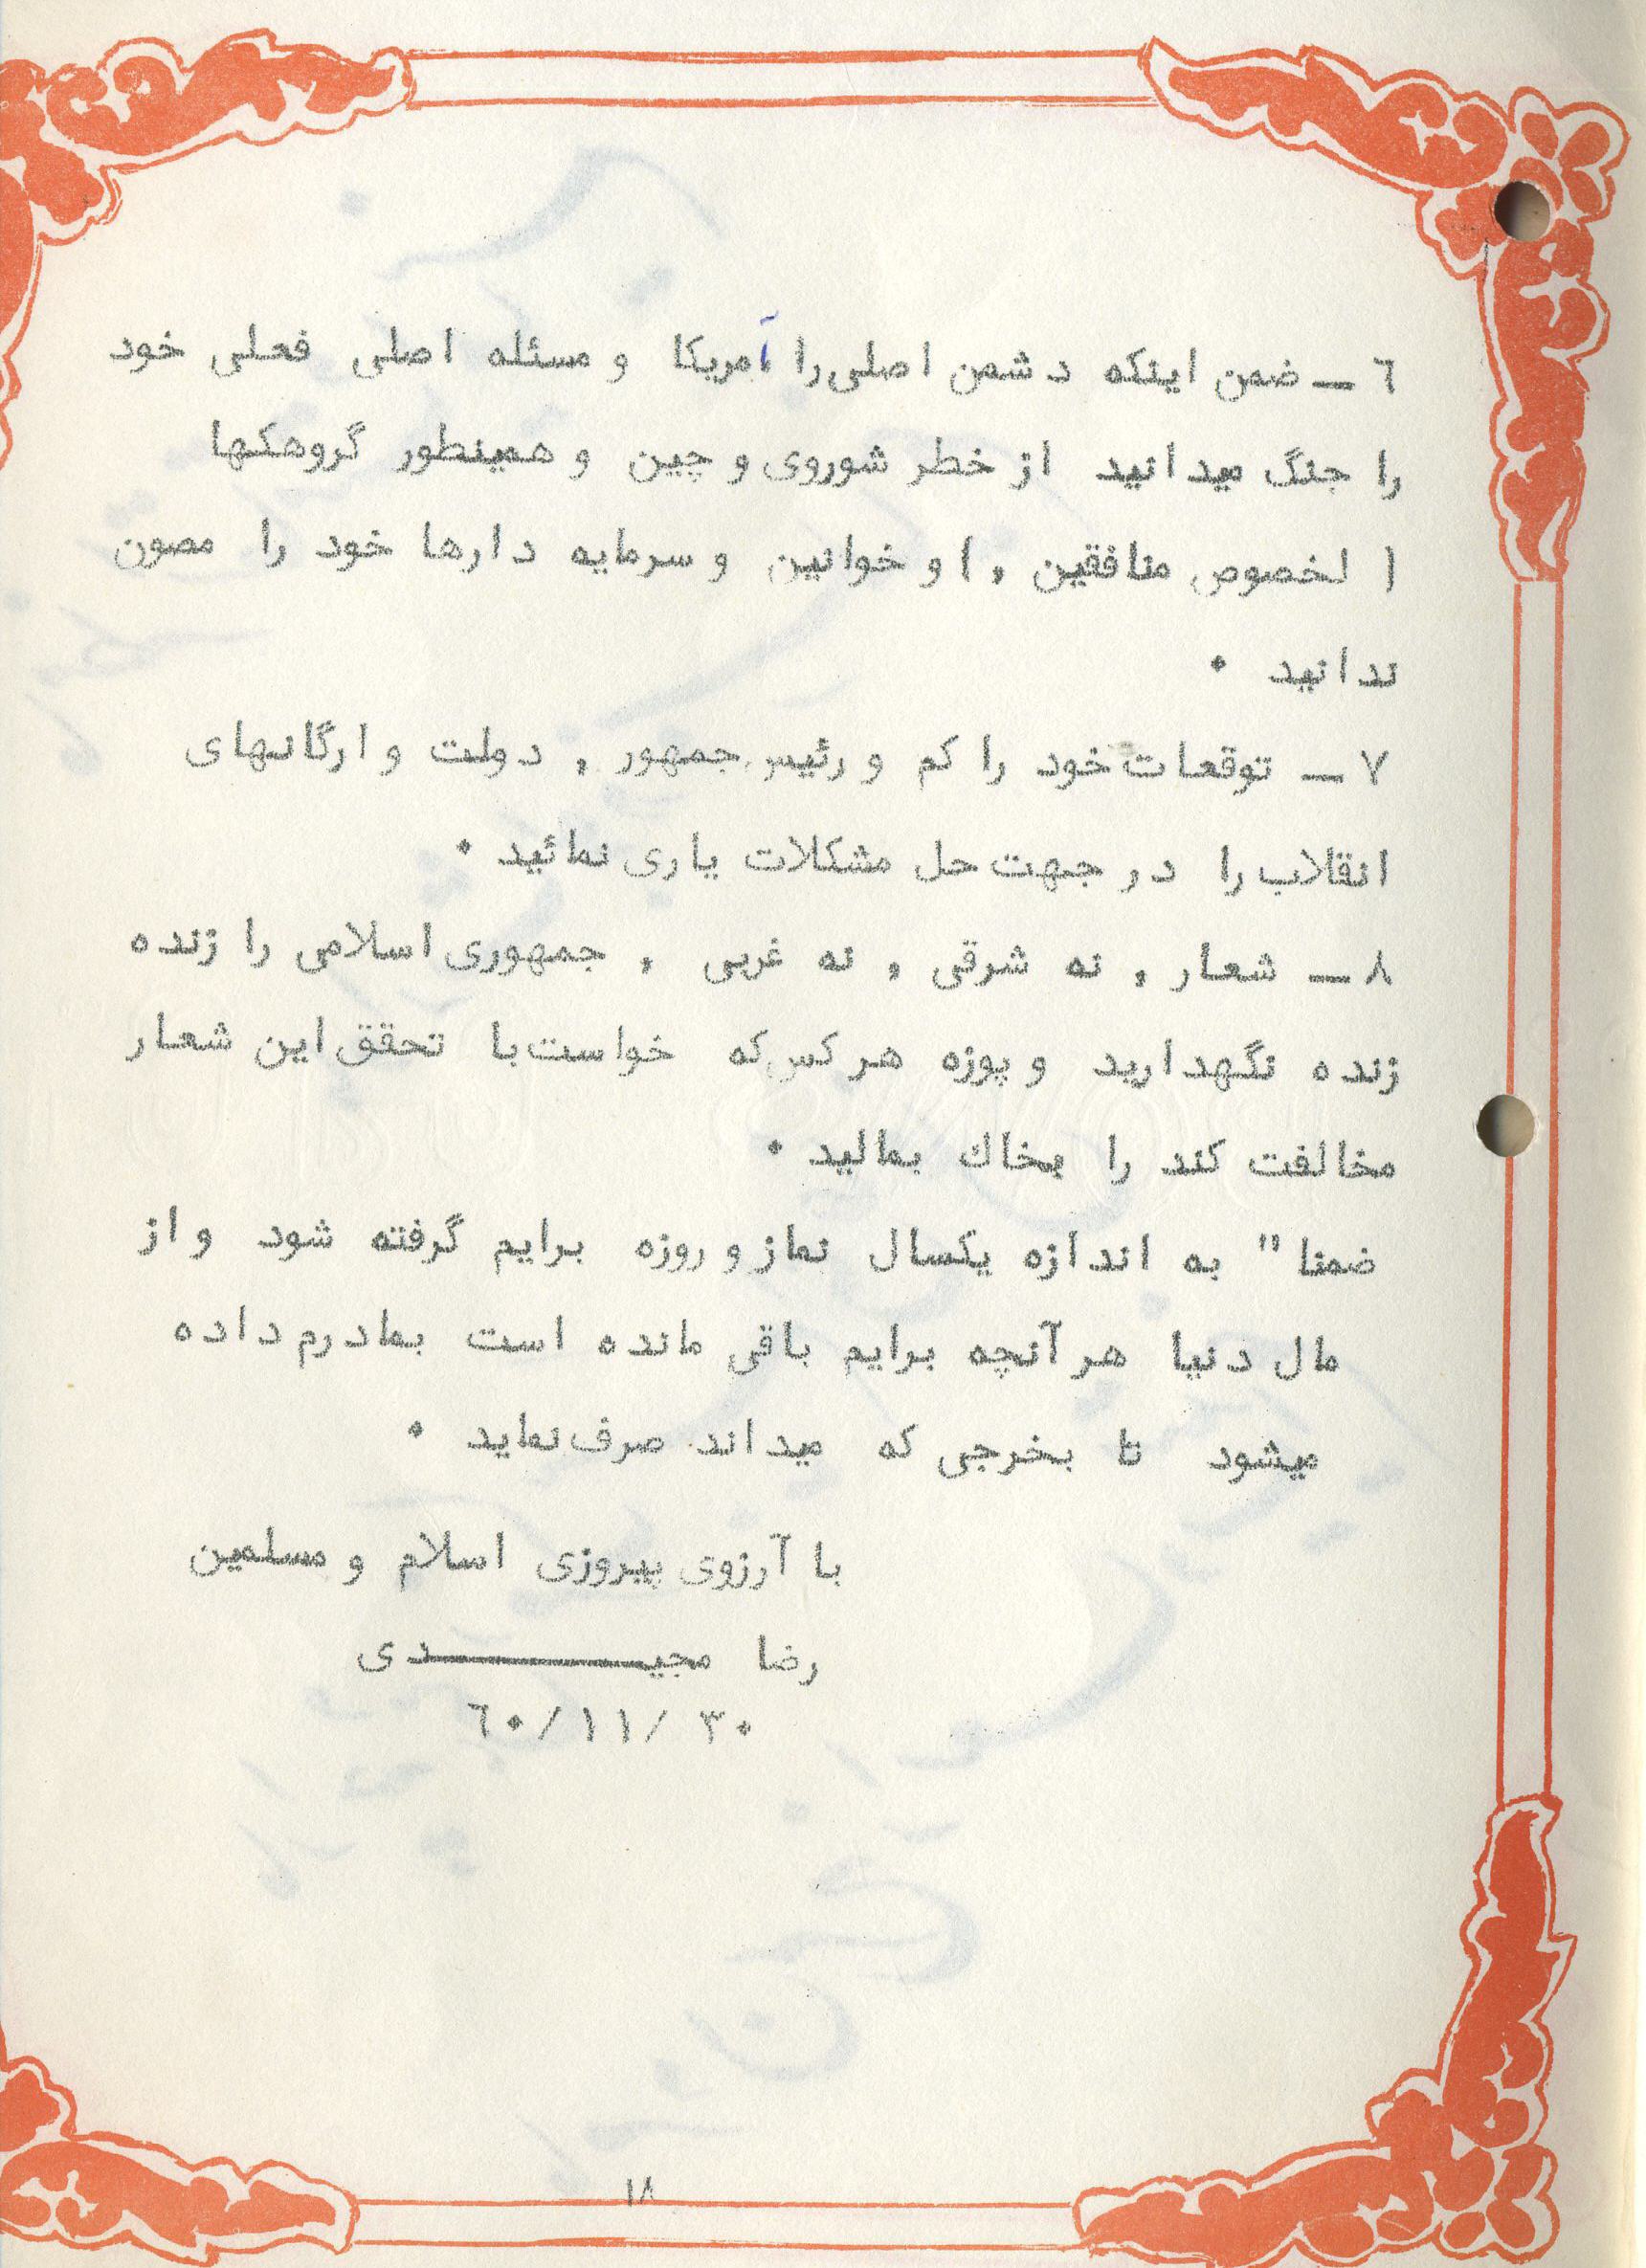 ٦ ــ ضمن اینکه دشمن اصلی را آمریکا و مسئله اصلی فعلی خود
را جنگ میدانید از خطر شوروی و چین و همینطور گروهکها
( لخصوص منافقین ، ) و خوانین و سرمایه دارها خود را مصون
ندانید .
٧ ــ توقعات خود را کم و رئیس جمهور ، دولت و ارگانهای
انقلاب را در جهت حل مشکلات یاری نمائید .
٨ ــ شعار ، نه شرقی ، نه غربی ، جمهوری اسلامی را زنده
زنده نگهدارید و پوزه هر کس که خواست با تحقق این شعار
مخالفت کند را بخاك بمالید .
ضمنا " به اندازه یکسال نماز و روزه برایم گرفته شود و از
مال دنیا هر آنچه برایم باقی مانده است بمادرم داده
میشود تا بخرجی که میداند صرف نماید .
با آرزوی پیروزی اسلام و مسلمین
رضا مجیــــــــدی
٦٠/١١/٣٠
١٨